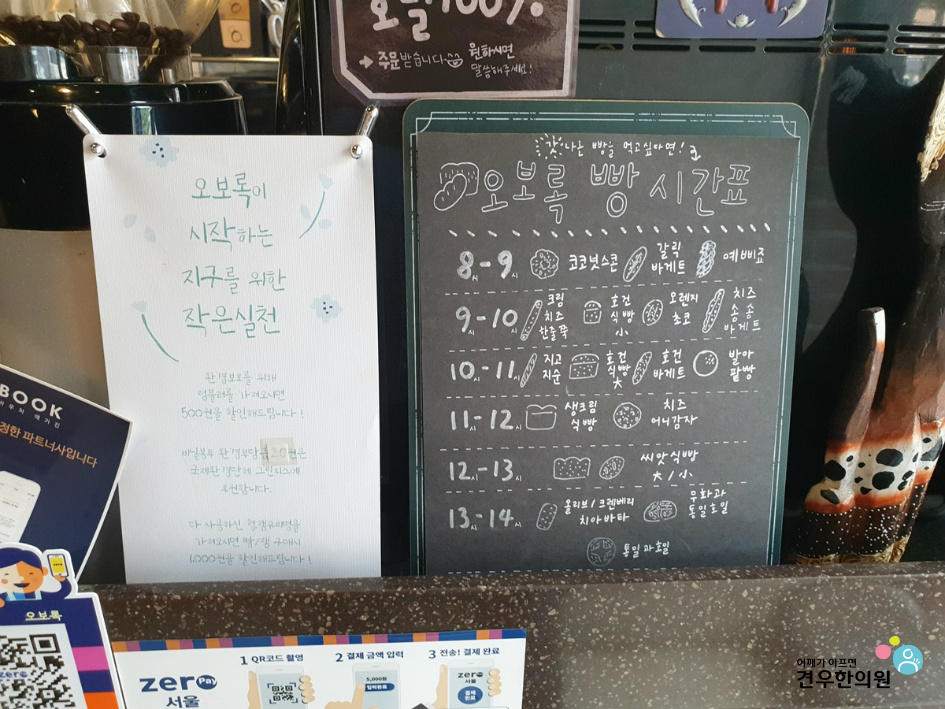 오보록이
시작하는
지구를 위한
작은실천
환경보호를 위해
텀블러를 가져오시면
500원을 할인해드립니다!
국제환경단체 그린피스에
후원합니다.
다 사용하신
가져오시면
1,000원을 할인해드립니다!
100%
→주문받습니다 원하시면
말씀해주세요!
갓 나온 빵을 먹고싶다면!
오보록 빵 시간표
8시-9시 코코넛스콘 갈릭 바게트 예삐죠
9시-10시 크림 치즈 한줄쭉 호건 식빵 小 오렌지 초코 치즈 송송 바게트
10시-11시 지고 지순 호건 식빵 大 호건 바게트 발아 팥빵
11시-12시 생크림 식빵 치즈 어니감자
12시-13시 씨앗식빵 大/小
13시-14시 올리브/크렌베리 치아바타 무화과 통밀호밀
통밀과호밀
BOOK
정한 파트너사입니다
오보록
zero
zero Pay
서울
1 QR코드 촬영
2 결제 금액 입력
3 전송! 결제 완료
5,000원
입력완료
zero
서울
결제
완료
어깨가 아프면
견우한의원